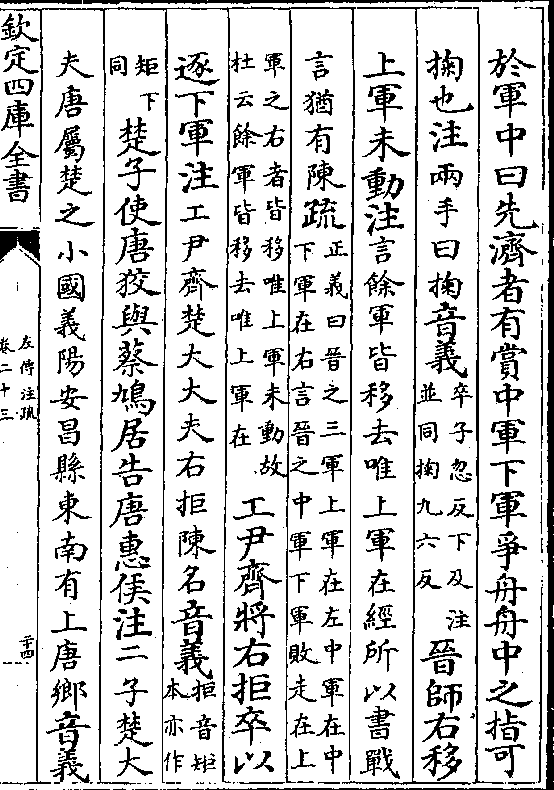 於軍中曰先濟者有賞中軍下軍爭舟舟中之指可
掬也注兩手曰掬音義卒子忽反下及注並同掬九六反晉師右移
上軍未動注言餘軍皆移去唯上軍在經所以書戰
言猶有陳疏正義曰晉之三軍上軍在左中軍在中下軍在右言晉之中軍下軍敗走在上
軍之右者皆移唯上軍未動故杜云餘軍皆移去唯上軍在工尹齊將右拒卒以
逐下軍注工尹齊楚大夫右拒陳名音義拒音矩本亦作
矩下同楚子使唐狡與蔡鳩居告唐惠侯注二子楚大
夫唐屬楚之小國義陽安昌縣東南有上唐鄉音義
欽定四庫全書
左傳注疏
卷二十三
二十四